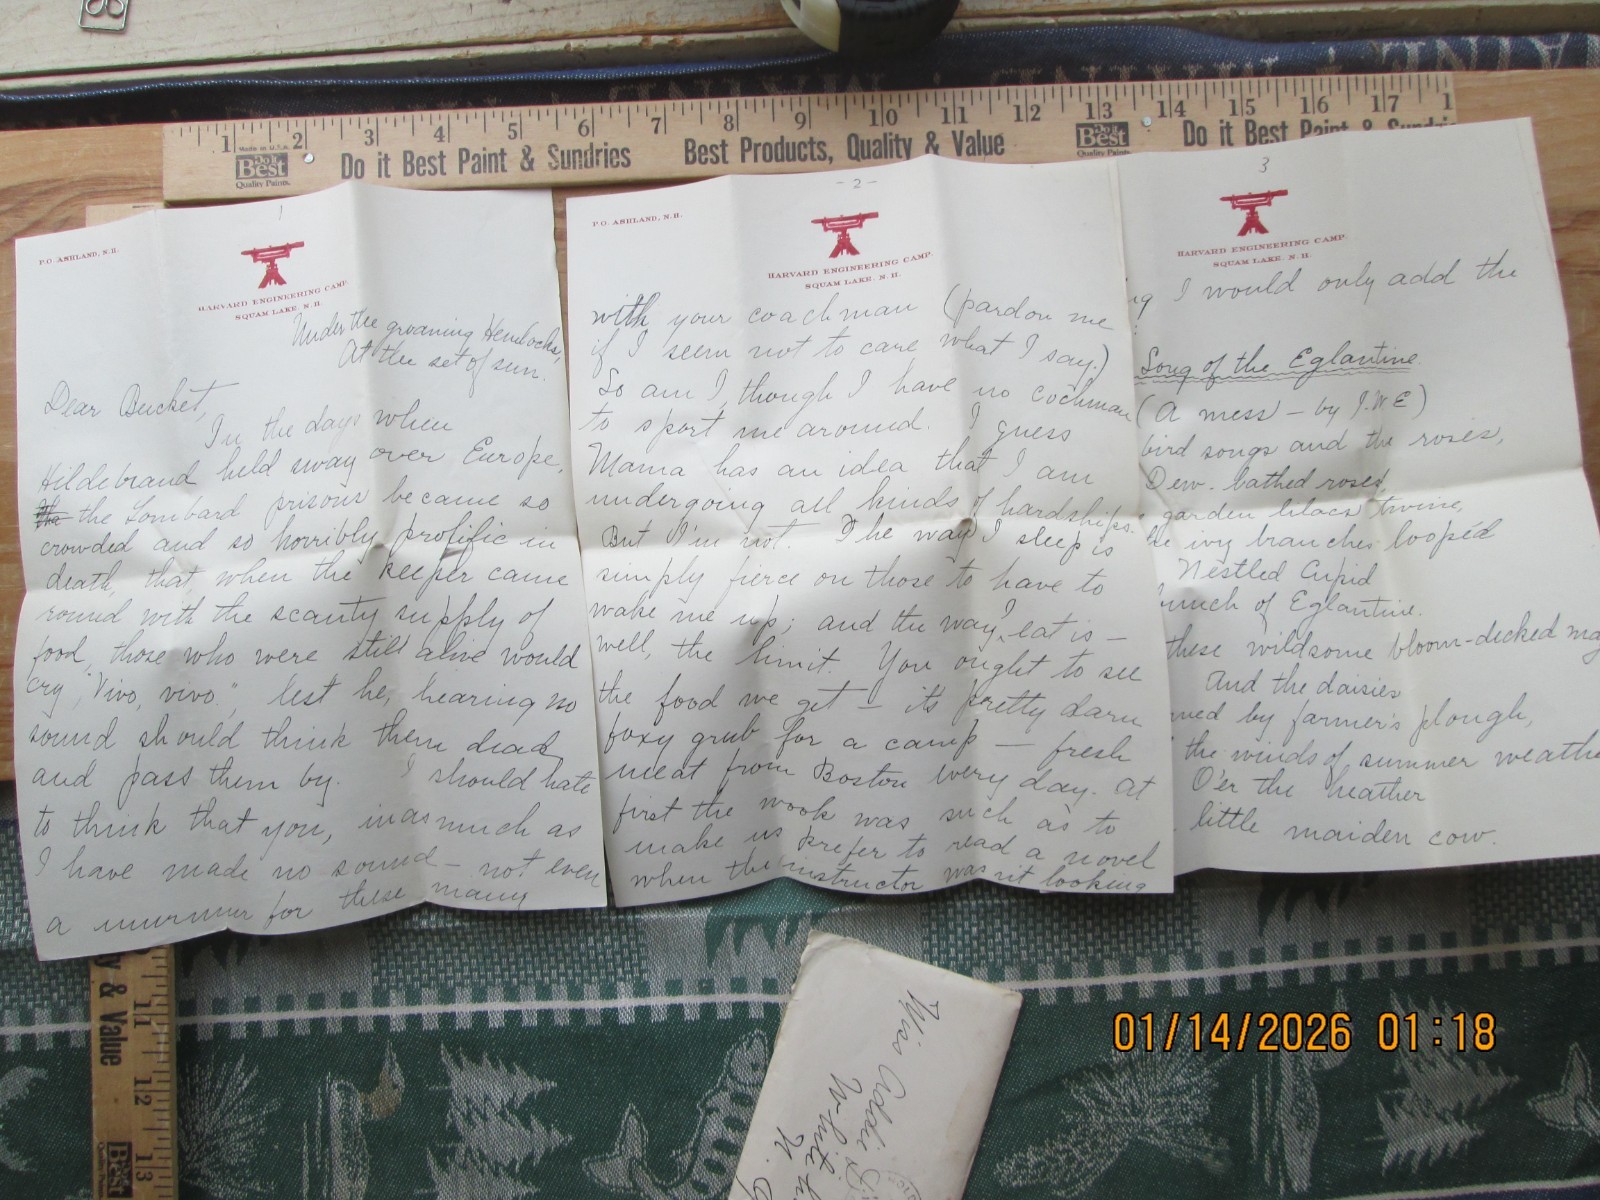 1 2 3 4 5 6 7 8 9 10 11 12 13 14 15 16 17 1
Made in U.S.A.
Do it Best Quality Paints. Do it Best Paint & Sundries Best Products, Quality & Value Do it Best Quality Paints. Do it Best Paint & Sundri
1
P.O. ASHLAND, N.H.
HARVARD ENGINEERING CAMP
SQUAM LAKE, N.H.
Under the groaning Hemlocks,
At the set of sun.
Dear Bucket,
In the days when
Hildebrand held sway over Europe,
the Lombard prisons became so
crowded and so horribly prolific in
death, that, when the keeper came
round with the scanty supply of
food, those who were still alive would
cry, "Vivo, vivo", lest he, hearing no
sound should think them dead
and pass them by. I should hate
to think that you, inasmuch as
I have made no sound — not even
a murmur for these many
- 2 -
P.O. ASHLAND, N.H.
HARVARD ENGINEERING CAMP
SQUAM LAKE, N.H.
with your coachman (pardon me
if I seem not to care what I say.)
So am I, though I have no cochman
to sport me around. I guess
Mama has an idea that I am
undergoing all kinds of hardships.
But I'm not. The way I sleep is
simply fierce on those to have to
wake me up; and the way I eat is —
well, the limit. You ought to see
the food we get — it's pretty darn
foxy grub for a camp — fresh
meat from Boston every day. At
first the work was such as to
make us prefer to read a novel
when the instructor wasn't looking
3
HARVARD ENGINEERING CAMP
SQUAM LAKE, N.H.
I would only add the
Song of the Eglantine.
(A mess — by J.W.E)
bird songs and the roses,
Dew-bathed roses,
garden lilacs twine,
ivy branches loopéd
Nestled Cupid
bunch of Eglantine.
these wildsome bloom-decked
And the daisies
by farmer's plough,
the winds of summer weathe
O'er the heather
little maiden cow.
Miss Addie
White
N.
y & Value
11
12
13
Best
01/14/2026 01:18